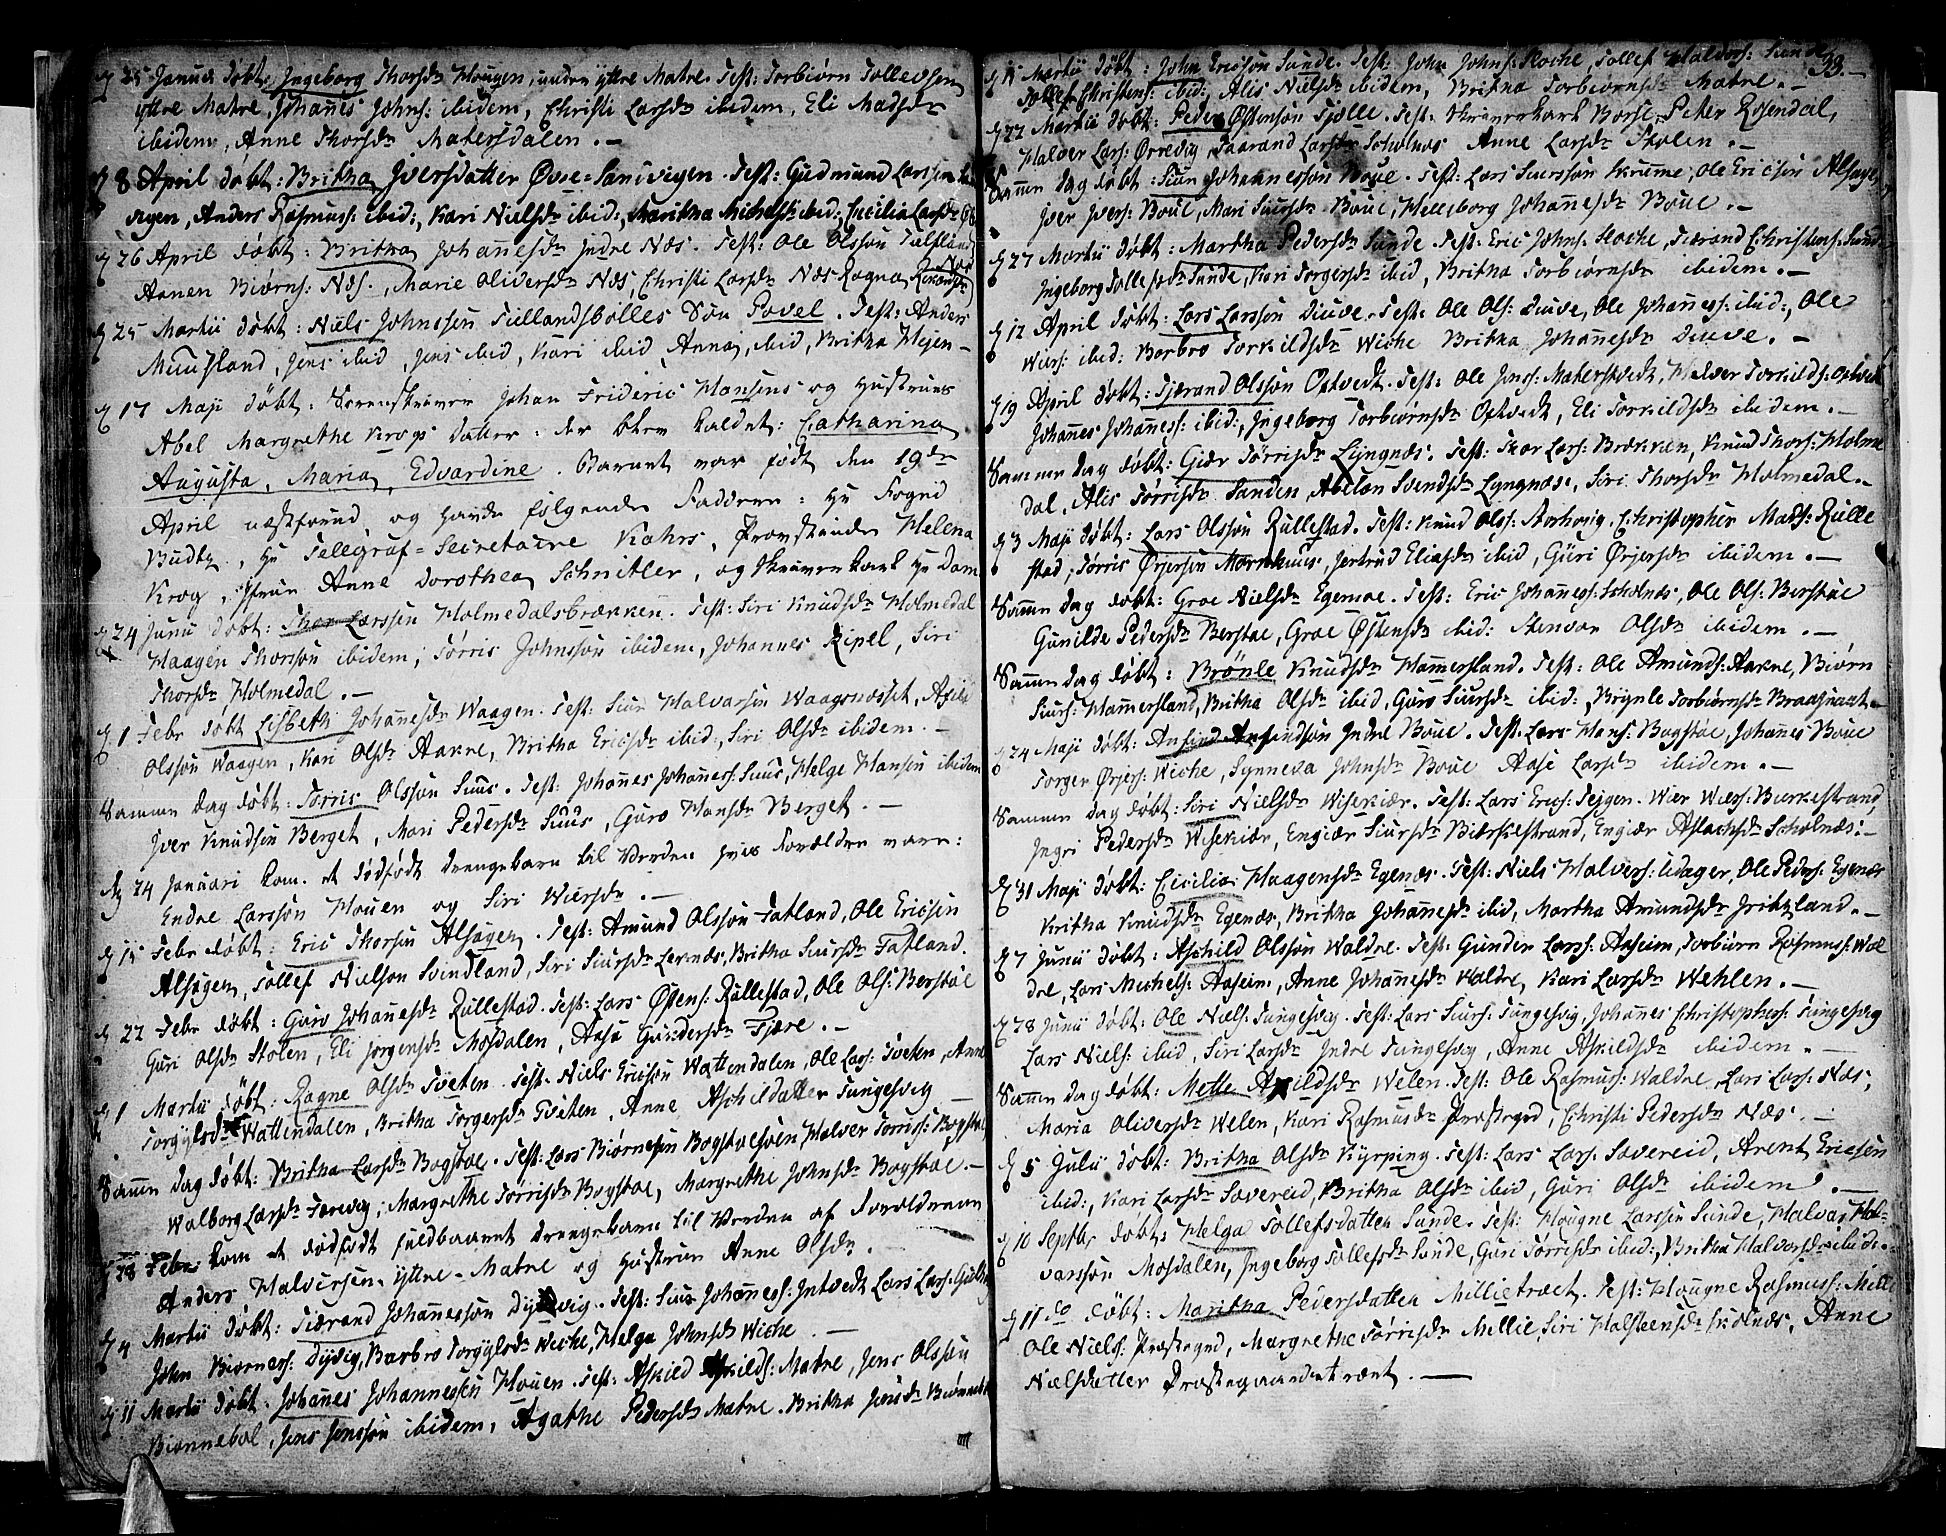 25 Januar døbt, Ingeborg Thorsdr Hougen, under yttre Matre. Test: Torbiørn Tollevsen
yttre Matre, Johannes Johns: ibidem, Christi Larsdr ibidem, Eli Madsdr
ibidem, Anne Thorsdr Matersdalen.
8 April døbt: Britha Iversdatter Øvre-Sandvigen. Test: Gudmund Larssen
vigen, Anders Rasmuss: ibid:, Kari Nielsdr ibid:, Maritha Michelsdr ibid:, Cecilia Larsdr
26 April døbt: Britha Johannesdr Indre Næs. Test: Ole Olsson
Annen Biørns: Næs, Marie Oliversdr Næs, Christi Larsdr Næs, Ragna
25 Martii døbt: Niels Johnssøn Tullandsbølles Søn Povel. Test: Anders
Muusland, Jens ibid, Jens ibid, Kari ibid Anna, ibid, Britha
17 Maji døbt: Sorenskriver Johan Frideric Hansens og Hustrues
Abel Margrethe Krogs Datter: der blev kaldet: Catharina
Augusta, Maria, Edvardine. Barnet var født den 19de
April næstforud, og havde følgende Faddere: Hr Foged
Budtz, Hr Telegraf-Secretaire Kahrs, Provstinde Helena
Krog, Frue Anne Dorothea Schnitler, og Skriverkarl Hr Dam
24 Junii døbt: Thor Larssen Holmedalsbrækken. Test: Siri Knudsdr Holmedal
Haagen Thorssøn ibidem, Tørris Johnssøn ibidem, Johannes Ripel, Siri
Thorsdr Holmedal.
1 Febr døbt Lisbeth Johannesdr Waagen. Test: Siur Halvarsen Waagsnosset,
Olsson Waagen, Kari Olsdr Aakre, Britha Ericsdr ibid:, Siri Olsdr ibidem.
Samme dag døbt: Torris Olsson Suus. Test: Johannes Johaness: Suus, Helge Hansen ibidem
Iver Knudsen Berget, Mari Pedersdr Suus, Guro Hansdr Berget.
24 Januari kom et dødfødt drengebarn til Verden hvis Forældre vare:
Endre Larssøn Houen og Siri Wiersdr.
15 Febr døbt: Eric Thorsen Alsagen. Test: Amund Olsson Fatland, Ole Ericsen
Alsagen, Tollef Nielson Svindland, Siri Siursdr Lernæs, Britha Siursdr Fatland.
22 Febr døbt: Guro Johannesdr Rullestad. Test: Lars Østens: Rullestad, Ole Ols: Berstøe
Guri Olsdr Stølen, Eli Jørgensdr Mosdalen, Aasa Gundersdr Fjære.
1 Martii døbt: Ragne Olsdr Tveten. Test: Niels Ericsøn Wattendalen, Ole Lars: Tveten, Anne
Torgylsdr Wattendalen, Britha Torgersdr Tveten, Anne Aschildatter Tungesvig
Samme dag døbt: Britha Larsdr Bogstøe. Test: Lars Biørnesen Bogstøesøen Halver Torriss: Bogstøe
Walborg Larsdr Førevig, Margrethe Torrisdr Bogstøe, Margrethe Johnsdr Bogstøe.
28 Febr: kom et dødfødt fuldbaaret drengebarn til Verden af Forældrene
Anders Halversen yttre-Matre og Hustrue Anne Olsdr.
4 Martii døbt: Tiærand Johannessøn Dyvig. Test: Siur Johanness: Intvedt Lars Lars:
John Biørness: Dyvig, Barbro Torgylsdr Wiche, Helga Johnsdr Wiche.
11 Martii døbt: Johannes Johannesen Houen. Test: Askild Askilds: Matre, Jens Olsson
Biønnebol, Jens Jenssøn ibidem, Agathe Pedersdr Matre. Britha Jensdr
33.
15 Martii døbt: John Ericsøn Sunde. Test: John Johns: Hoche, Tollef Haldors: Sunde
Tollef Christens: ibid:, Alis Nielsdr ibidem, Britha Torbiørnsdr Matre.
22 Martii døbt: Peder Østensøn Tjølle. Test: Skriverkarl Borse, Peter Rosendal,
Halver Lars: Ørrevig, Taarand Larsdr Scholnæs Anne Larsdr Stølen.
Samme dag døbt: Siur Johannessøn Boue. Test: Lars Siurssøn Skrumme, Ole Ericsen
Iver Ivers: Boue, Mari Siursdr Boue, Hellsborg Johannesdr Boue.
27 Martii døbt: Martha Pedersdr Sunde. Test: Eric Johns: Hoche, Tiærand Christens: Sund
Ingeborg Tollefsdr Sunde, Kari Torgersdr ibid, Britha Torbiørnsdr ibidem.
12 April døbt: Lars Larssøn Diuve. Test: Ole Ols: Diuve, Ole Johanness: ibid:, Ole
Wiers: ibid: Barbro Torkildsdr Wiche Britha Johannesdr Diuve.
19 April døbt: Tjærand Olssøn Østvedt. Test: Ole Jenss: Materstvedt, Halver Torkilds: Østvedt
Johannes Johaness: ibid:, Ingeborg Torbiørnsdr Østvedt, Eli Torkildsdr ibidem.
Samme dag døbt: Giær Tørrisdr Lyngnæs. Test: Thor Lars: Brækken, Knud Thors: Holme
dal, Alis Tørrisdr Sanden, Abelon Svendsdr Lyngnæs, Siri Thorsdr Holmedal.
3 Maji døbt: Lars Olssøn Rullestad. Test: Knud Olss: Aarhoug, Christopher Mads: Rulle
stad, Tørris Ørjersen Mørkhuus, Jertrud Eliasdr ibid, Guri Ørjersdr ibidem.
Samme dag døbt: Groe Nielsdr Egemoe. Test: Eric Johaness: Scholnæs, Ole Ols: Berstøe
Gunilde Pedersdr Berstøe, Groe Østensdr ibid: Stenvor Olsdr ibidem.
Samme dag døbt: Brønle Knudsdr Hammersland. Test: Ole Amunds: Aakre, Biørn
Siurs: Hammersland, Britha Olsdr ibid, Guro Siursdr ibid: Brynle Torbiørnsdr
24 Maji døbt: Ansind Ansindsøn Indre Boue. Test: Lars Hans: Bogstøe, Johannes Boue
Torger Ørjers: Wiche, Synneva Johnsdr Boue Aase Larsdr ibidem.
Samme dag døbt: Siri Nielsdr Wisekiær. Test: Lars Erics: Tejgen. Wier Wiers: Birkestrand,
Ingri Pedersdr Wisekiær, Engiær Siursdr Birkestrand, Engiær Aslachsdr Scholnæs.
31 Maji døbt: Cicilia Haagensdr Egenæs. Test: Niels Halvers: Udager, Ole Peders: Egenæs
Britha Knudsdr Egenæs, Britha Johannesdr ibid, Martha Amundsdr
7 Junii døbt: Aschild Olsson Waldre. Test: Gunder Larss: Aaseim, Torbiørn Rasmuss: Wal
dre, Lars Michels: Aaseim, Anne Johannesdr Waldre, Kari Larsdr Wehlen.
28 Junii døbt: Ole Niels: Tungesvig. Test: Lars Siurs: Tungesvig, Johannes Christophers: Tungesvig
Lars Niels: ibid, Siri Larsdr Indre Tungesvig, Anne Askildsdr ibidem.
Samme dag døbt: Mette Askildsdr Welen. Test: Ole Rasmus: Waldre, Lars Lars: Næs,
Maria Oliversdr Welen, Kari Rasmusdr Præstegrd, Christi Pedersdr Næs.
5 Julii døbt: Britha Olsdr Kyrping. Test: Lars Lars: Sævereid, Arent Ericsen
ibid:, Kari Larsdr Sævereid, Britha Olsdr ibid, Guri Olsdr ibidem.
10 Septbr døbt: Helga Tollefsdatter Sunde. Test: Hougne Larssen Sunde, Halvar Hal-
varssøn Mosdalen, Ingeborg Tollefsdr Sunde, Guri Tørrisdr ibid:, Britha Halvorsdr ibid:
11 do døbt: Maritha Pedersdatter Millietræet. Test: Hougne Rasmuss: Milli
Ole Niels: Præstegrd, Margrethe Tørrisdr Mellie, Siri Halsteensdr Scholnæs, Anne
Nielsdatter Præstegaardstræet.